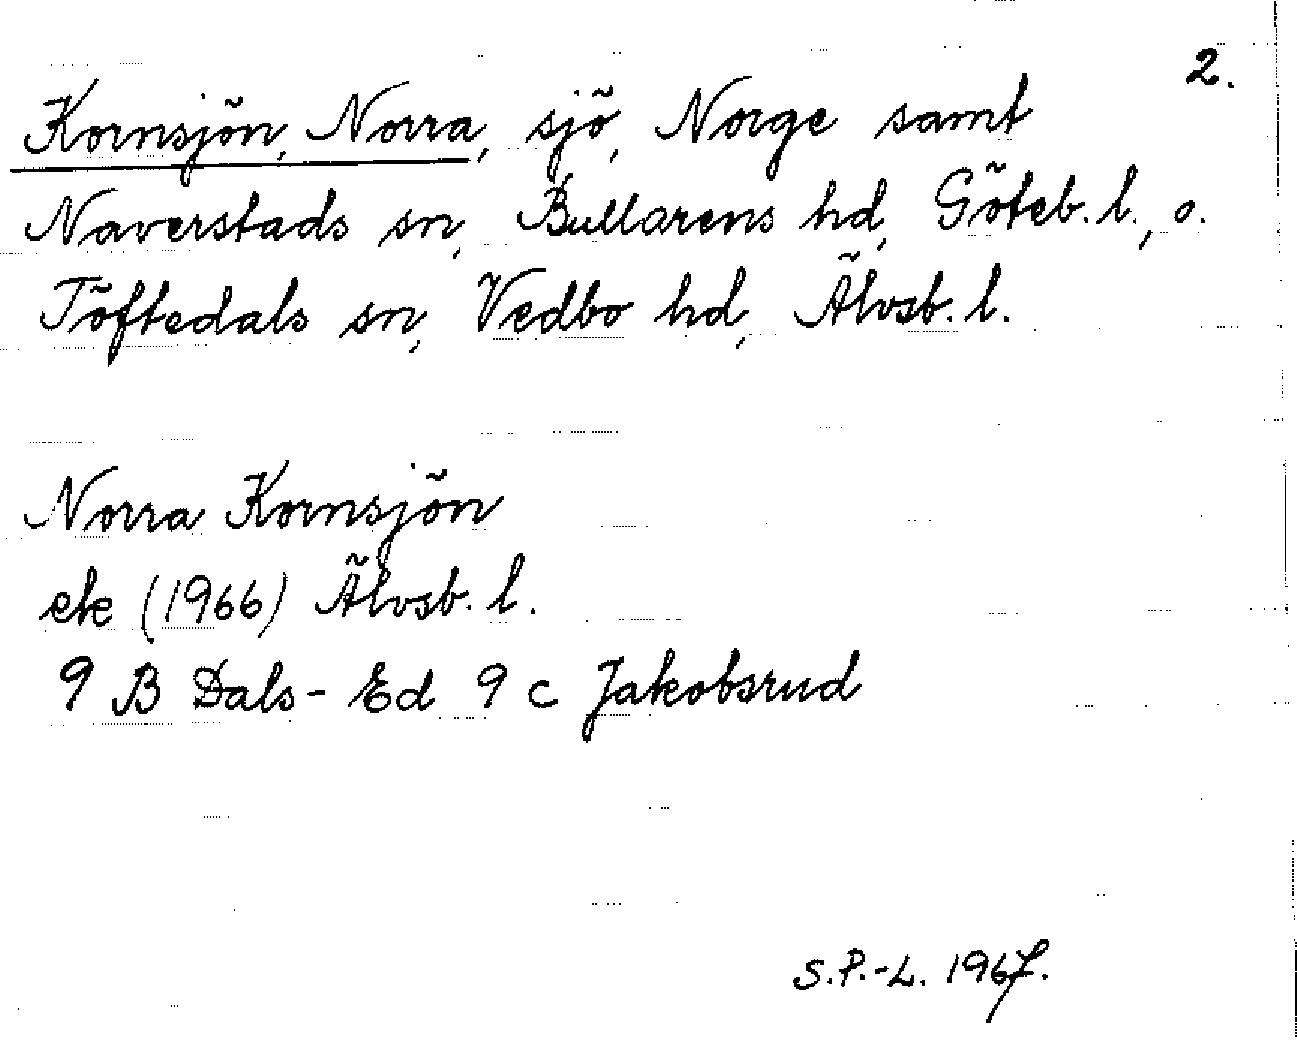 2.
Kornsjön, Norra, sjö, Norge samt
Naverstads sn, Bullarens hd, Göteb. l., o.
Töftedals sn, Vedbo hd, Älvsb. l.
Norra Kornsjön
ek (1966) Älvsb. l.
9 B Dals-Ed 9 c Jakobsrud
S.P.-L. 1967.